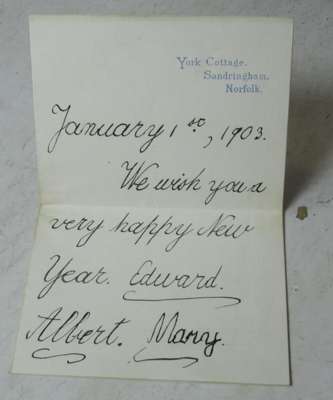 York Cottage.
Sandringham,
Norfolk.
January 1st, 1903.
We wish you a
very happy New
Year. Edward.
Albert. Mary.